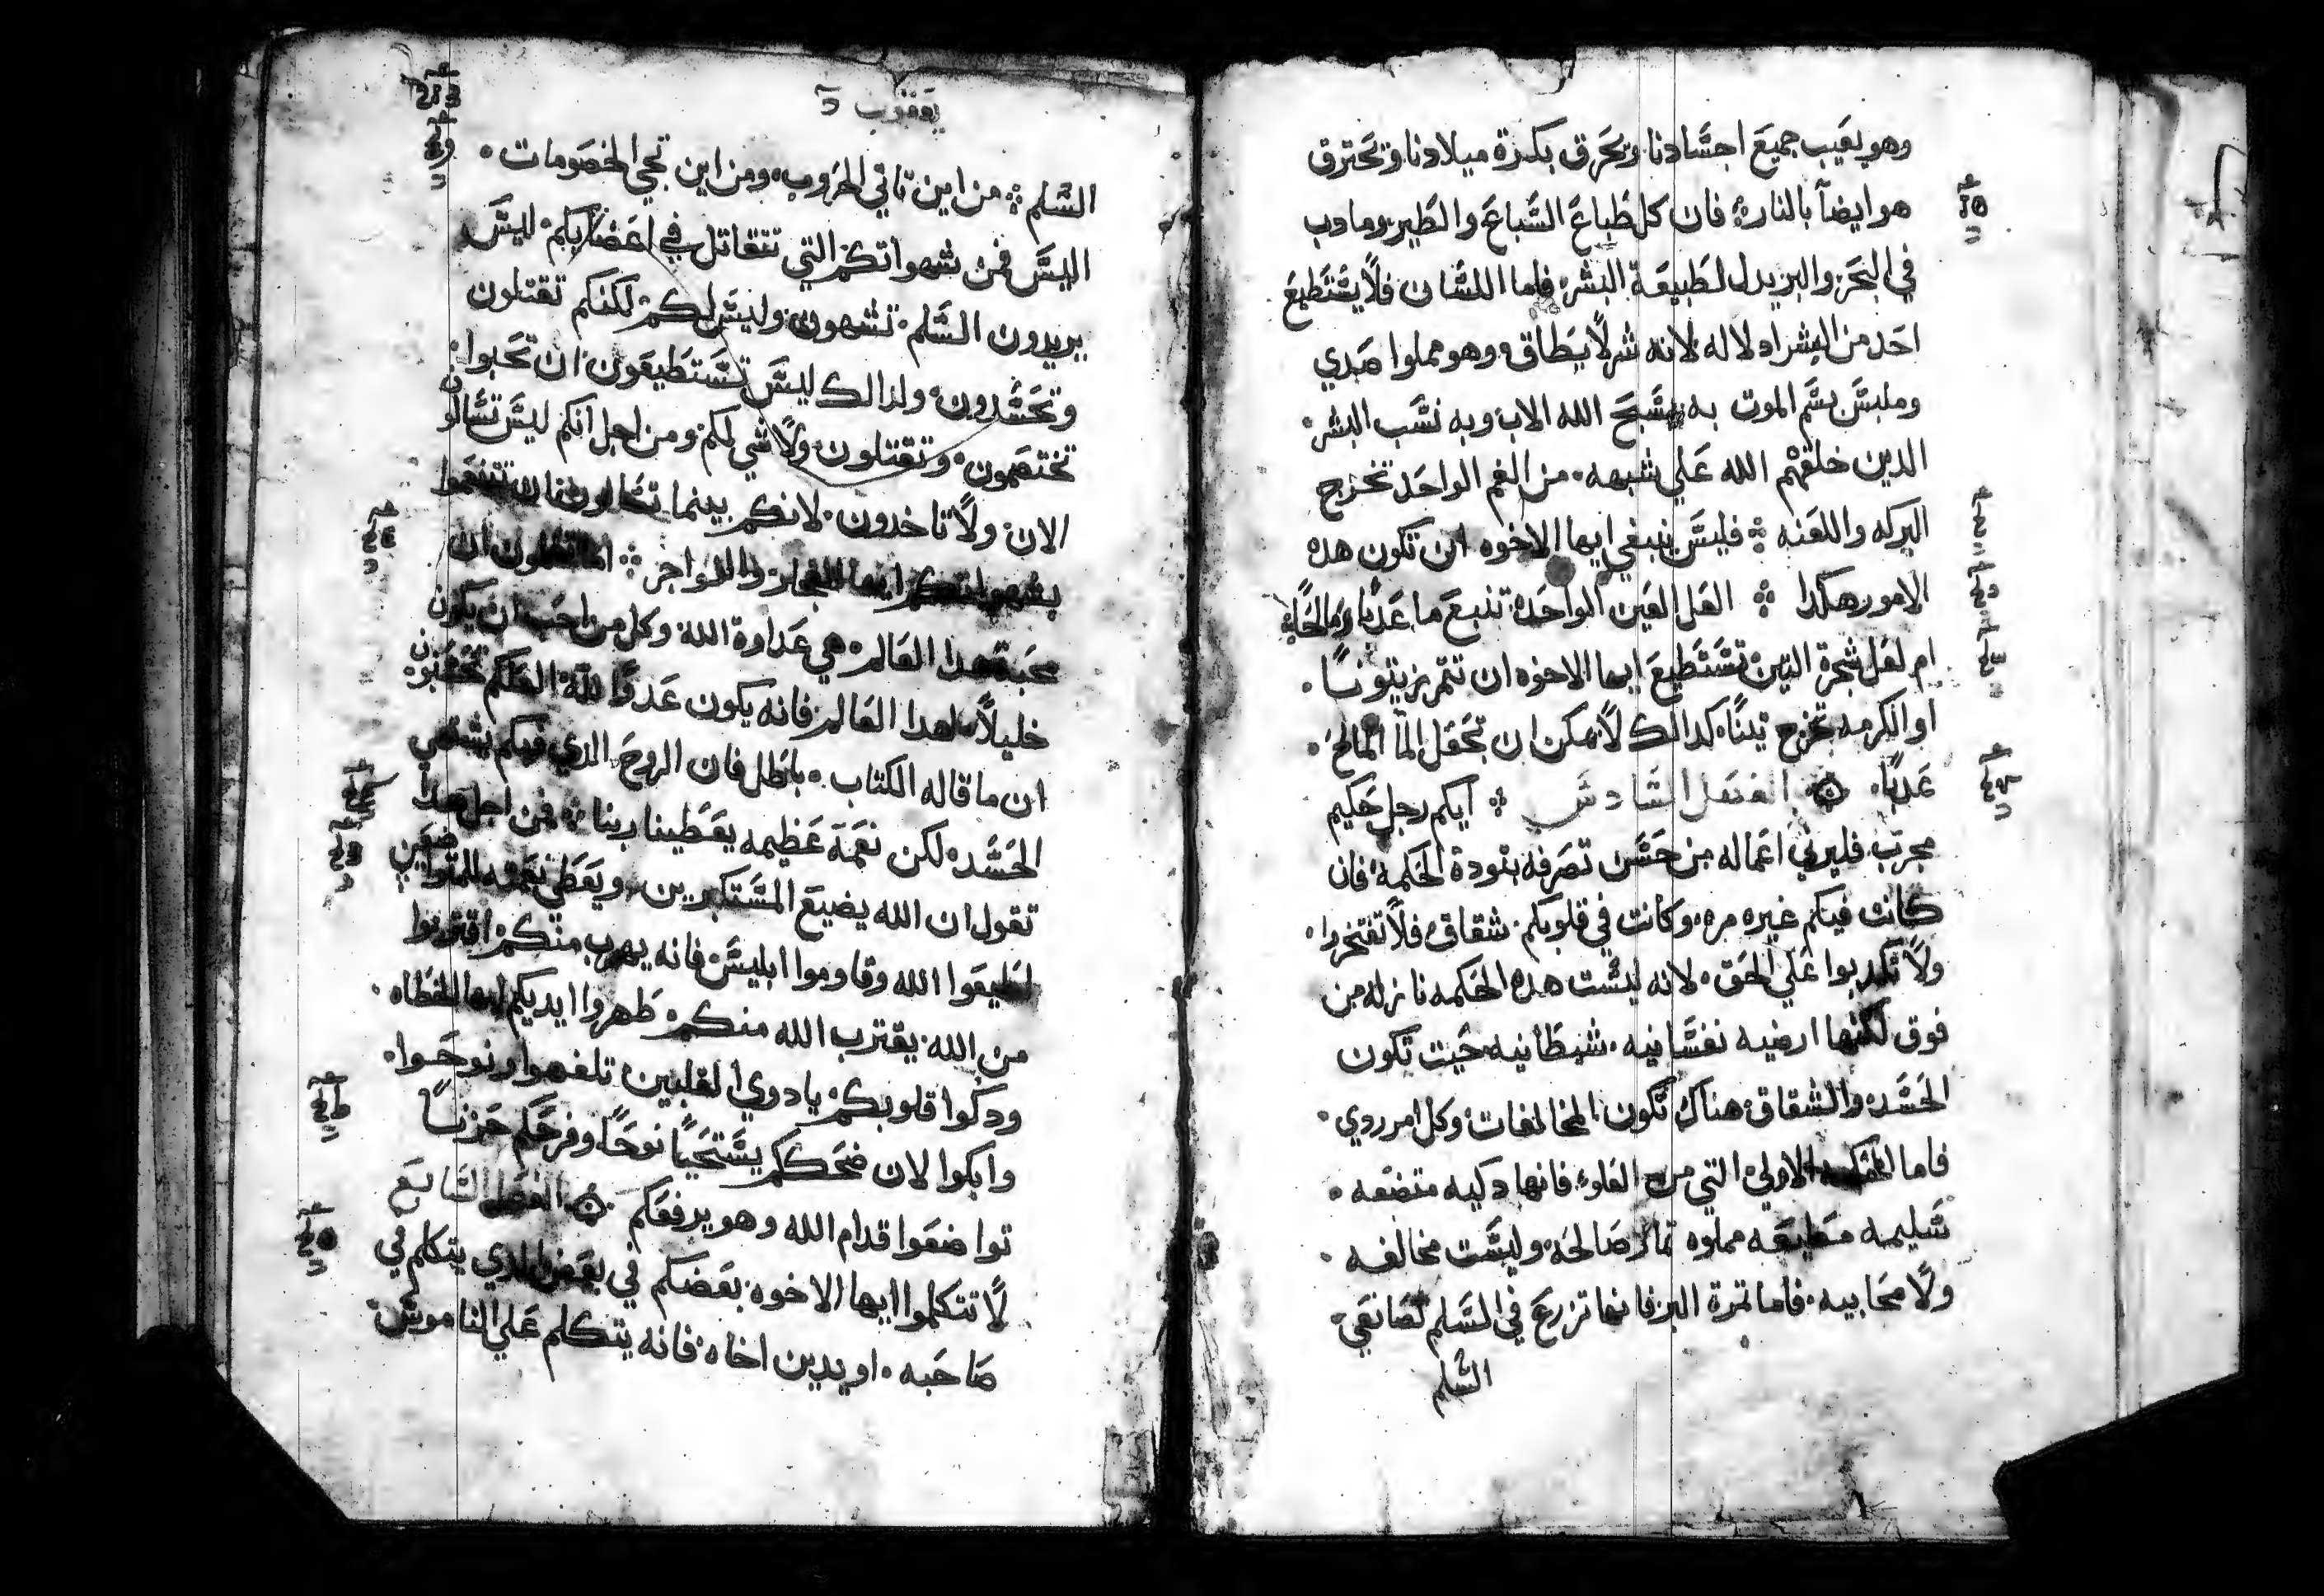 وهو يعَيب جميعَ اجسَّادنا ويحَرق بكرة ميلادنا وتحَترق
هو ايضاً بالنار فان كل طَباعَ السَّباعَ والطَير وما دب
في البحَر والبر يدل لطَبيعَة البشر فاما اللسَّان فلاً يسَّتطَيعَ
احَد من البشر ادلاله لانه شر لاً يطَاق وهو مملوا صَدي
وملبسَّ بسَّم الموت به نسَّبحَ الله الاب وبه نسَّب البشر
الدين خلقهم الله عَلي شبهه من الفم الواحَد تخرج
البركه واللعَنه فليسَّ ينبغي ايها الاخوه ان تكون هده
الامور هكدا العَل العَين الواحَده تنبعَ ماً عَدباً ومالحَاً
ام لعَل شجرة التين تسَّتطَيعَ ايها الاخوه ان تتمر زيتونسًا
او الكرمه تخرج تيناً كدالك لاً يمكن ان تجعَل الماً المالحَ
عَدباً الفصَل السَّادسَّ ايكم رجل حَكيم
مجرب فليرني اعَماله من حَسَّن تصَرفه بتودة الحَكمه فان
كانت فيكم غيره مره وكانت في قلوبكم شقاق فلاً تفتخروا
ولاً تكدبوا عَلي الحَق لانه ليسَّت هده الحَكمه نازله من
فوق لكنها ارضيه نفسَّانيه شيطَانيه حَيت تكون
الحَسَّد والشقاق هناك تكون المخالفات وكل امر ردي
فاما الحَكمه الاولي التي من العَلو فانها دكيه متضعَه
سَّليمه مطَيعَه مملوه تمار صَالحَه وليسَّت مخالفه
ولاً محَابيه فاما تمرة البر فانها تزرعَ في السَّلم لصَانعَي
السَّلم
يعَقوب
السَّلم من اين تاتي الحَروب ومن اين تجي الخصَومات
اليسَّ من شهواتكم التي تتقاتل في اعَضايكم ليسَّ
يريدون السَّلم تشتهون وليسَّ لكم لكنكم تقتلون
وتحَسَّدون ولدالك ليسَّ تسَّتطَيعَون ان تحَبوا
تختصَمون وتقتلون ولاً شي لكم ومن اجل انكم ليسَّ تسَّالون
الان ولاً تاخدون لانكم بينما تسَّالون فان تتنعَموا
بشهواتكم ايها الفجار والفواجر اما تعَلمون ان
محَبة هدا العَالم هي عَداوة الله وكل من احَب ان يكون
خليلاً لهدا العَالم فانه يكون عَدواً لله العَلكم تحَسَّبون
ان ما قاله الكتاب باطَل فان الروحَ الدي فيكم يشتهي
الحَسَّد لكن نعَمة عَظيمه يعَطينا ربنا فمن اجل هدا
تقول ان الله يضيعَ المسَّتكبرين ويعَطي نعَمه للمتواضعَين
اطَيعَوا الله وقاوموا ابليسَّ فانه يهرب منكم اقتربوا
من الله يقترب الله منكم طَهروا ايديكم ايها الخطَاه
ودكوا قلوبكم يا دوي القلبين تلهفوا ونوحَوا
وابكوا لان ضحَككم يسَّتحَيل نوحَاً وفرحَكم حَزناً
تواضعَوا قدام الله وهو يرفعَكم الفصَل السَّابعَ
لاً تتكلموا ايها الاخوه بعَضكم في بعَض الدي يتكلم في
صَاحَبه او يدين اخاه فانه يتكلم عَلي الناموسَّ